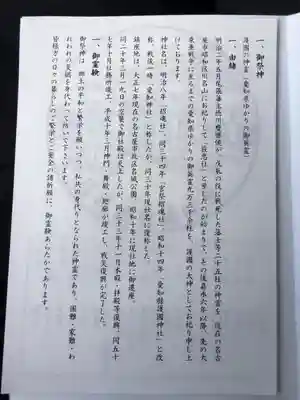 一、御祭神
護国の神霊(愛知県ゆかりの御英霊)
一、由緒
明治二年五月尾張藩主徳川慶勝侯が、戊辰の役に戦死した藩士等二十五柱の神霊を、現在の名古
屋市昭和区川名山にお祀りして「旌忠社」と号したのが始まりで、その後嘉永六年以降、先の大
東亜戦争に至るまでの愛知県ゆかりの御英霊九万三千余柱を、護国の大神としてお祀り申し上
げております。
神社名は、明治八年「招魂社」、同三十四年「官祭招魂社」、昭和十四年「愛知縣護國神社」と改
称、戦後一時「愛知神社」と称したが、同三十年現社名に復称した。
鎮座地は、大正七年現在の名古屋市政区名城公園、昭和十年に現社地に御遷座。
同二十年三月一九日の空襲で御社殿は炎上したが、同三十三年十一月本殿・拝殿等復興、同五十
七年十月社務所竣工、平成十年三月神門・舞殿・廻廊が竣工し、戦災復興が完了した。
一、御霊験
御祭神は、郷土の平和と繁栄を願いつつ、私共の身代りとなられた神霊であり、困難・家難・わ
れわれの災禍を身代わって防いで下さいます。
皆様方の日々の暮らしのご繁栄とご安全の諸祈願に、御霊験あらたかであります。